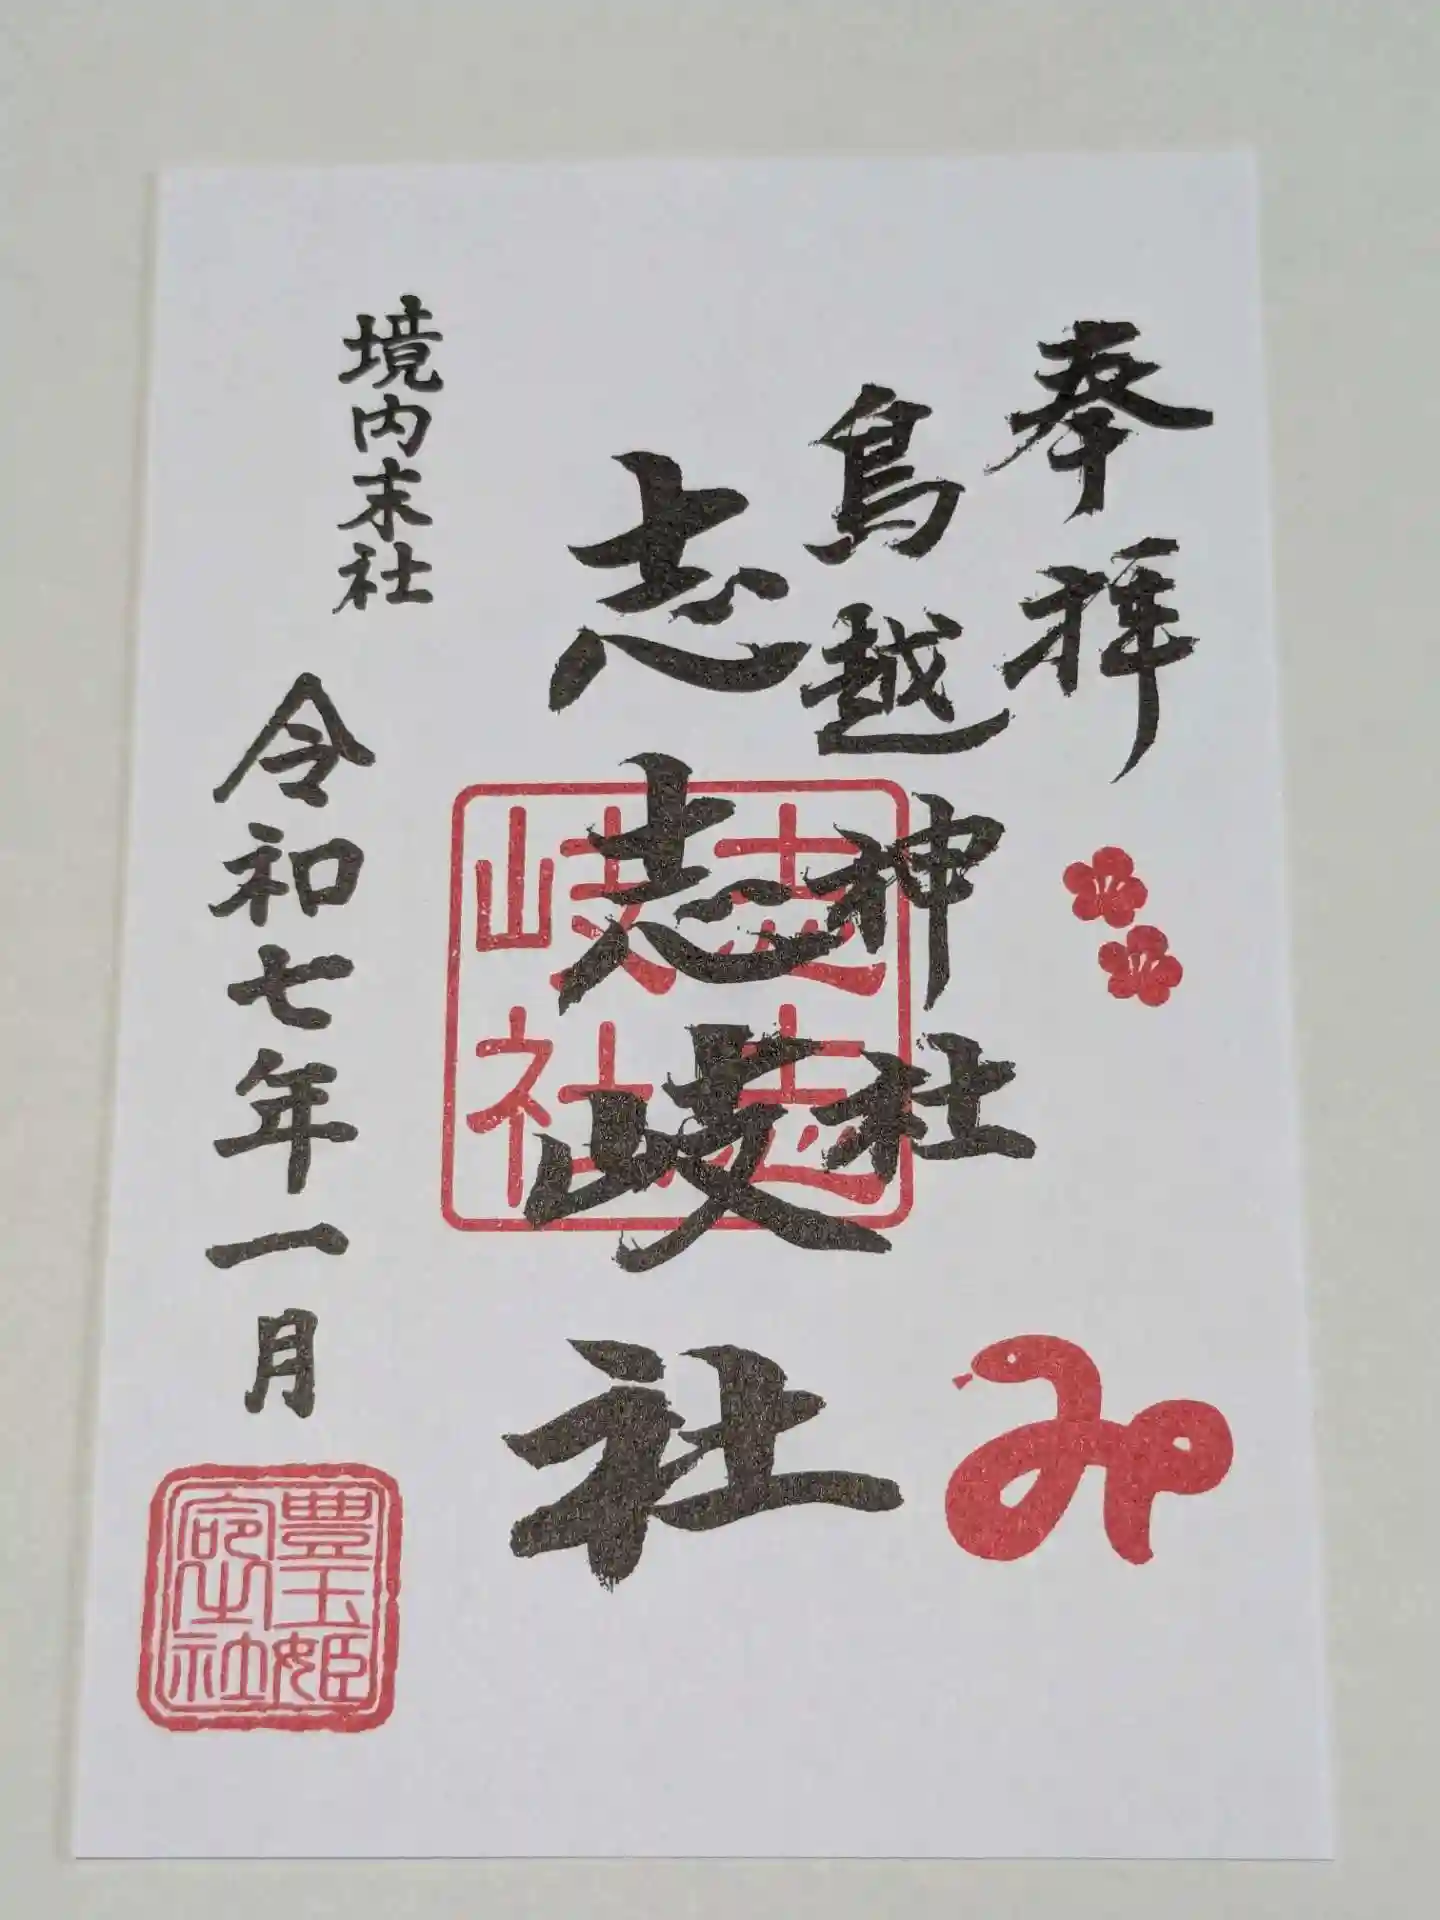 奉拝
鳥越神社
志志岐社
境内末社
令和七年一月
志志
岐社
豊玉姫
之社
み